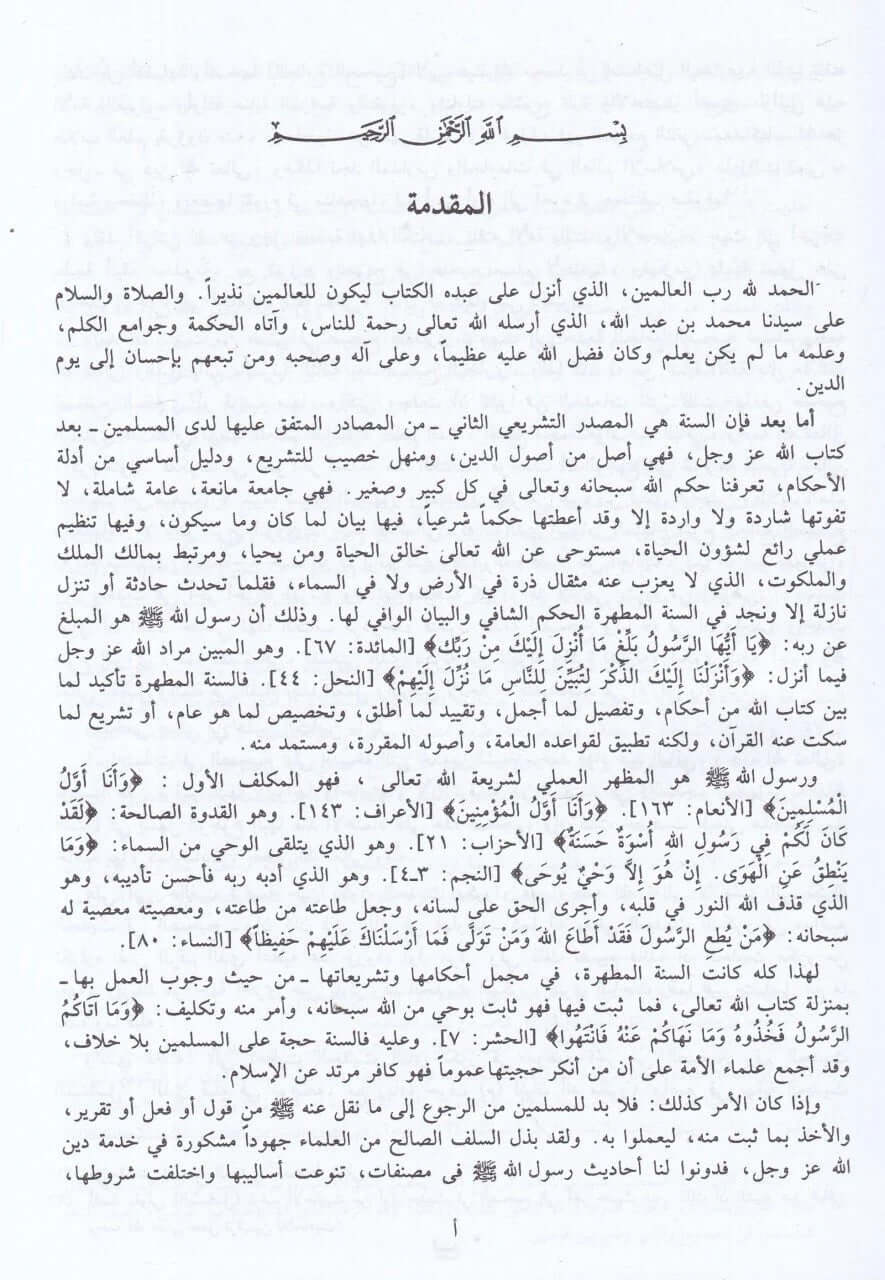 بسم الله الرحمن الرحيم
المقدمة
الحمد لله رب العالمين، الذي أنزل على عبده الكتاب ليكون للعالمين نذيراً. والصلاة والسلام
على سيدنا محمد بن عبد الله، الذي أرسله الله تعالى رحمة للناس، وآتاه الحكمة وجوامع الكلم،
وعلمه ما لم يكن يعلم وكان فضل الله عليه عظيماً، وعلى آله وصحبه ومن تبعهم بإحسان إلى يوم
الدين.
أما بعد فإن السنة هي المصدر التشريعي الثاني ـ من المصادر المتفق عليها لدى المسلمين ـ بعد
كتاب الله عز وجل، فهي أصل من أصول الدين، ومنهل خصيب للتشريع، ودليل أساسي من أدلة
الأحكام، تعرفنا حكم الله سبحانه وتعالى في كل كبير وصغير. فهي جامعة مانعة، عامة شاملة، لا
تفوتها شاردة ولا واردة إلا وقد أعطتها حكماً شرعياً، فيها بيان لما كان وما سيكون، وفيها تنظيم
عملي رائع لشؤون الحياة، مستوحى عن الله تعالى خالق الحياة ومن يحيا، ومرتبط بمالك الملك
والملكوت، الذي لا يعزب عنه مثقال ذرة في الأرض ولا في السماء، فقلما تحدث حادثة أو تنزل
نازلة إلا ونجد في السنة المطهرة الحكم الشافي والبيان الوافي لها. وذلك أن رسول الله ﷺ هو المبلغ
عن ربه: ﴿يَا أَيُّهَا الرَّسُولُ بَلِّغْ مَا أُنْزِلَ إِلَيْكَ مِنْ رَبِّكَ﴾ [المائدة: ٦٧]. وهو المبين مراد الله عز وجل
فيما أنزل: ﴿وَأَنْزَلْنَا إِلَيْكَ الذِّكْرَ لِتُبَيِّنَ لِلنَّاسِ مَا نُزِّلَ إِلَيْهِمْ﴾ [النحل: ٤٤]. فالسنة المطهرة تأكيد لما
بين كتاب الله من أحكام، وتفصيل لما أجمل، وتقييد لما أطلق، وتخصيص لما هو عام، أو تشريع لما
سكت عنه القرآن، ولكنه تطبيق لقواعده العامة، وأصوله المقررة، ومستمد منه.
ورسول الله ﷺ هو المظهر العملي لشريعة الله تعالى ، فهو المكلف الأول : ﴿وَأَنَا أَوَّلُ
المُسْلِمِينَ﴾ [الأنعام: ١٦٣]. ﴿وَأَنَا أَوَّلُ الْمُؤْمِنِينَ﴾ [الأعراف: ١٤٣]. وهو القدوة الصالحة: ﴿لَقَدْ
كَانَ لَكُمْ فِي رَسُولِ اللهِ أُسْوَةٌ حَسَنَةٌ﴾ [الأحزاب: ٢١]. وهو الذي يتلقى الوحي من السماء: ﴿وَمَا
يَنْطِقُ عَنِ الْهَوَى. إِنْ هُوَ إِلاَّ وَحْيٌ يُوحَى﴾ [النجم: ٣ـ٤]. وهو الذي أدبه ربه فأحسن تأديبه، وهو
الذي قذف الله النور في قلبه، وأجرى الحق على لسانه، وجعل طاعته من طاعته، ومعصيته معصية له
سبحانه: ﴿مَنْ يُطِعِ الرَّسُولَ فَقَدْ أَطَاعَ اللهَ وَمَنْ تَوَلَّى فَمَا أَرْسَلْنَاكَ عَلَيْهِمْ حَفِيظاً﴾ [النساء: ٨٠].
لهذا كله كانت السنة المطهرة، في مجمل أحكامها وتشريعاتها ـ من حيث وجوب العمل بها ـ
بمنزلة كتاب الله تعالى، فما ثبت فيها فهو ثابت بوحي من الله سبحانه، وأمر منه وتكليف: ﴿وَمَا آتَاكُمُ
الرَّسُولُ فَخُذُوهُ وَمَا نَهَاكُمْ عَنْهُ فَانْتَهُوا﴾ [الحشر: ٧]. وعليه فالسنة حجة على المسلمين بلا خلاف،
وقد أجمع علماء الأمة على أن من أنكر حجيتها عموماً فهو كافر مرتد عن الإسلام.
وإذا كان الأمر كذلك: فلا بد للمسلمين من الرجوع إلى ما نقل عنه ﷺ من قول أو فعل أو تقرير،
والأخذ بما ثبت منه، ليعملوا به. ولقد بذل السلف الصالح من العلماء جهوداً مشكورة في خدمة دين
الله عز وجل، فدونوا لنا أحاديث رسول الله ﷺ فى مصنفات، تنوعت أساليبها واختلفت شروطها،
أ